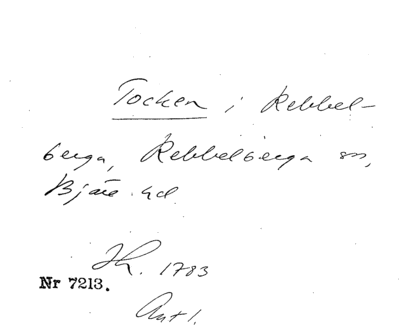 Tocken i Rebbel-
berga, Rebbelberga sn,
Bjäre hd.
Jh. 1783
Nr 7213.
Ant 1.